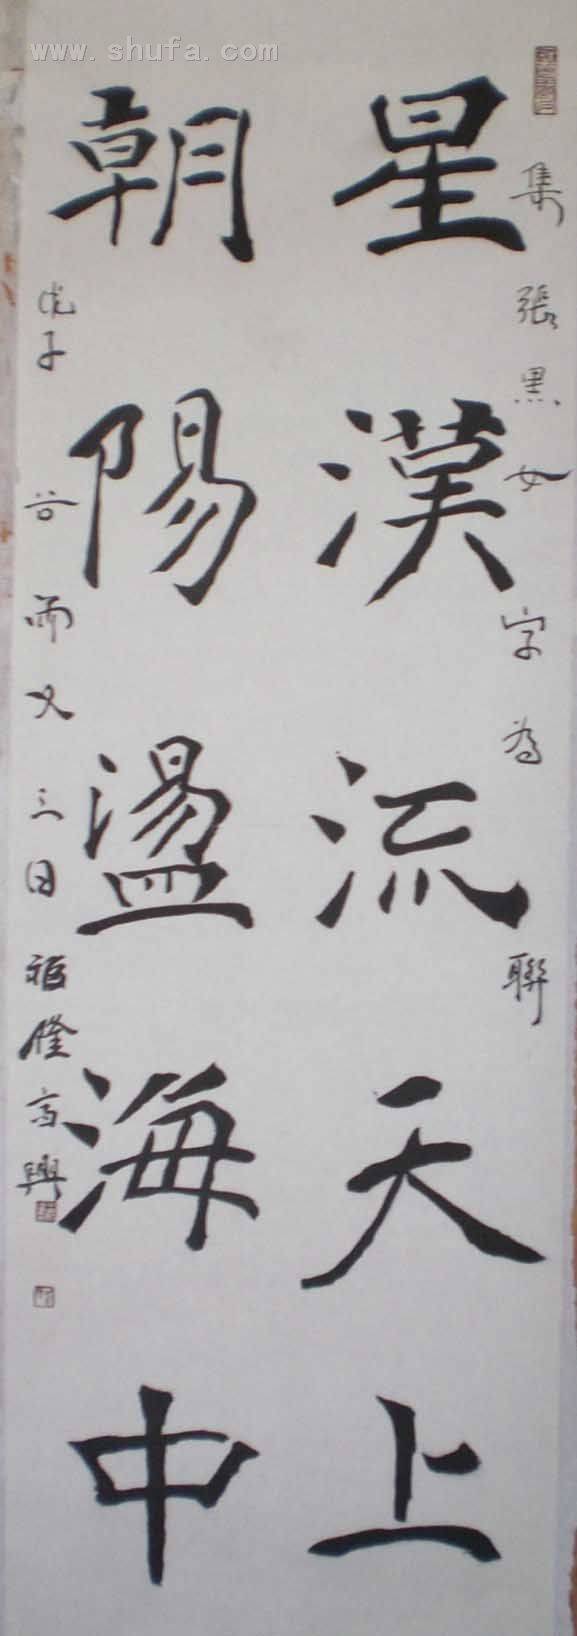 www.shufa.com
集張黑女字為聯
星漢流天上
朝陽盪海中
戊子谷雨又三日福隆高興